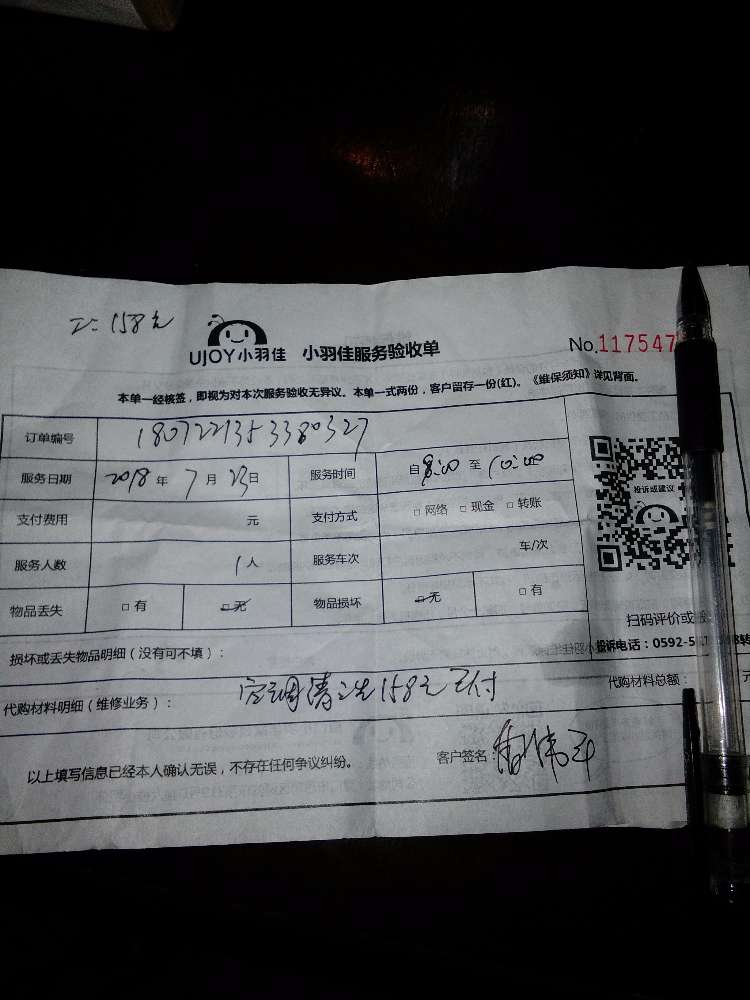 158元
UJOY小羽佳 小羽佳服务验收单 No.117547
本单一经核签，即视为对本次服务验收无异议。本单一式两份，客户留存一份(红)。《维保须知》详见背面。
订单编号 1807221353380327
服务日期 2018年7月23日 服务时间 自8:00至10:00
支付费用 元 支付方式 □网络 □现金 □转账
投诉或建议
服务人数 1人 服务车次 车/次
物品丢失 □有 □无 物品损坏 □无 □有
扫码评价或
损坏或丢失物品明细（没有可不填）：
投诉电话：0592-5
代购材料明细（维修业务）： 空调清洗158元已付 代购材料总额： 元
以上填写信息已经本人确认无误，不存在任何争议纠纷。 客户签名：